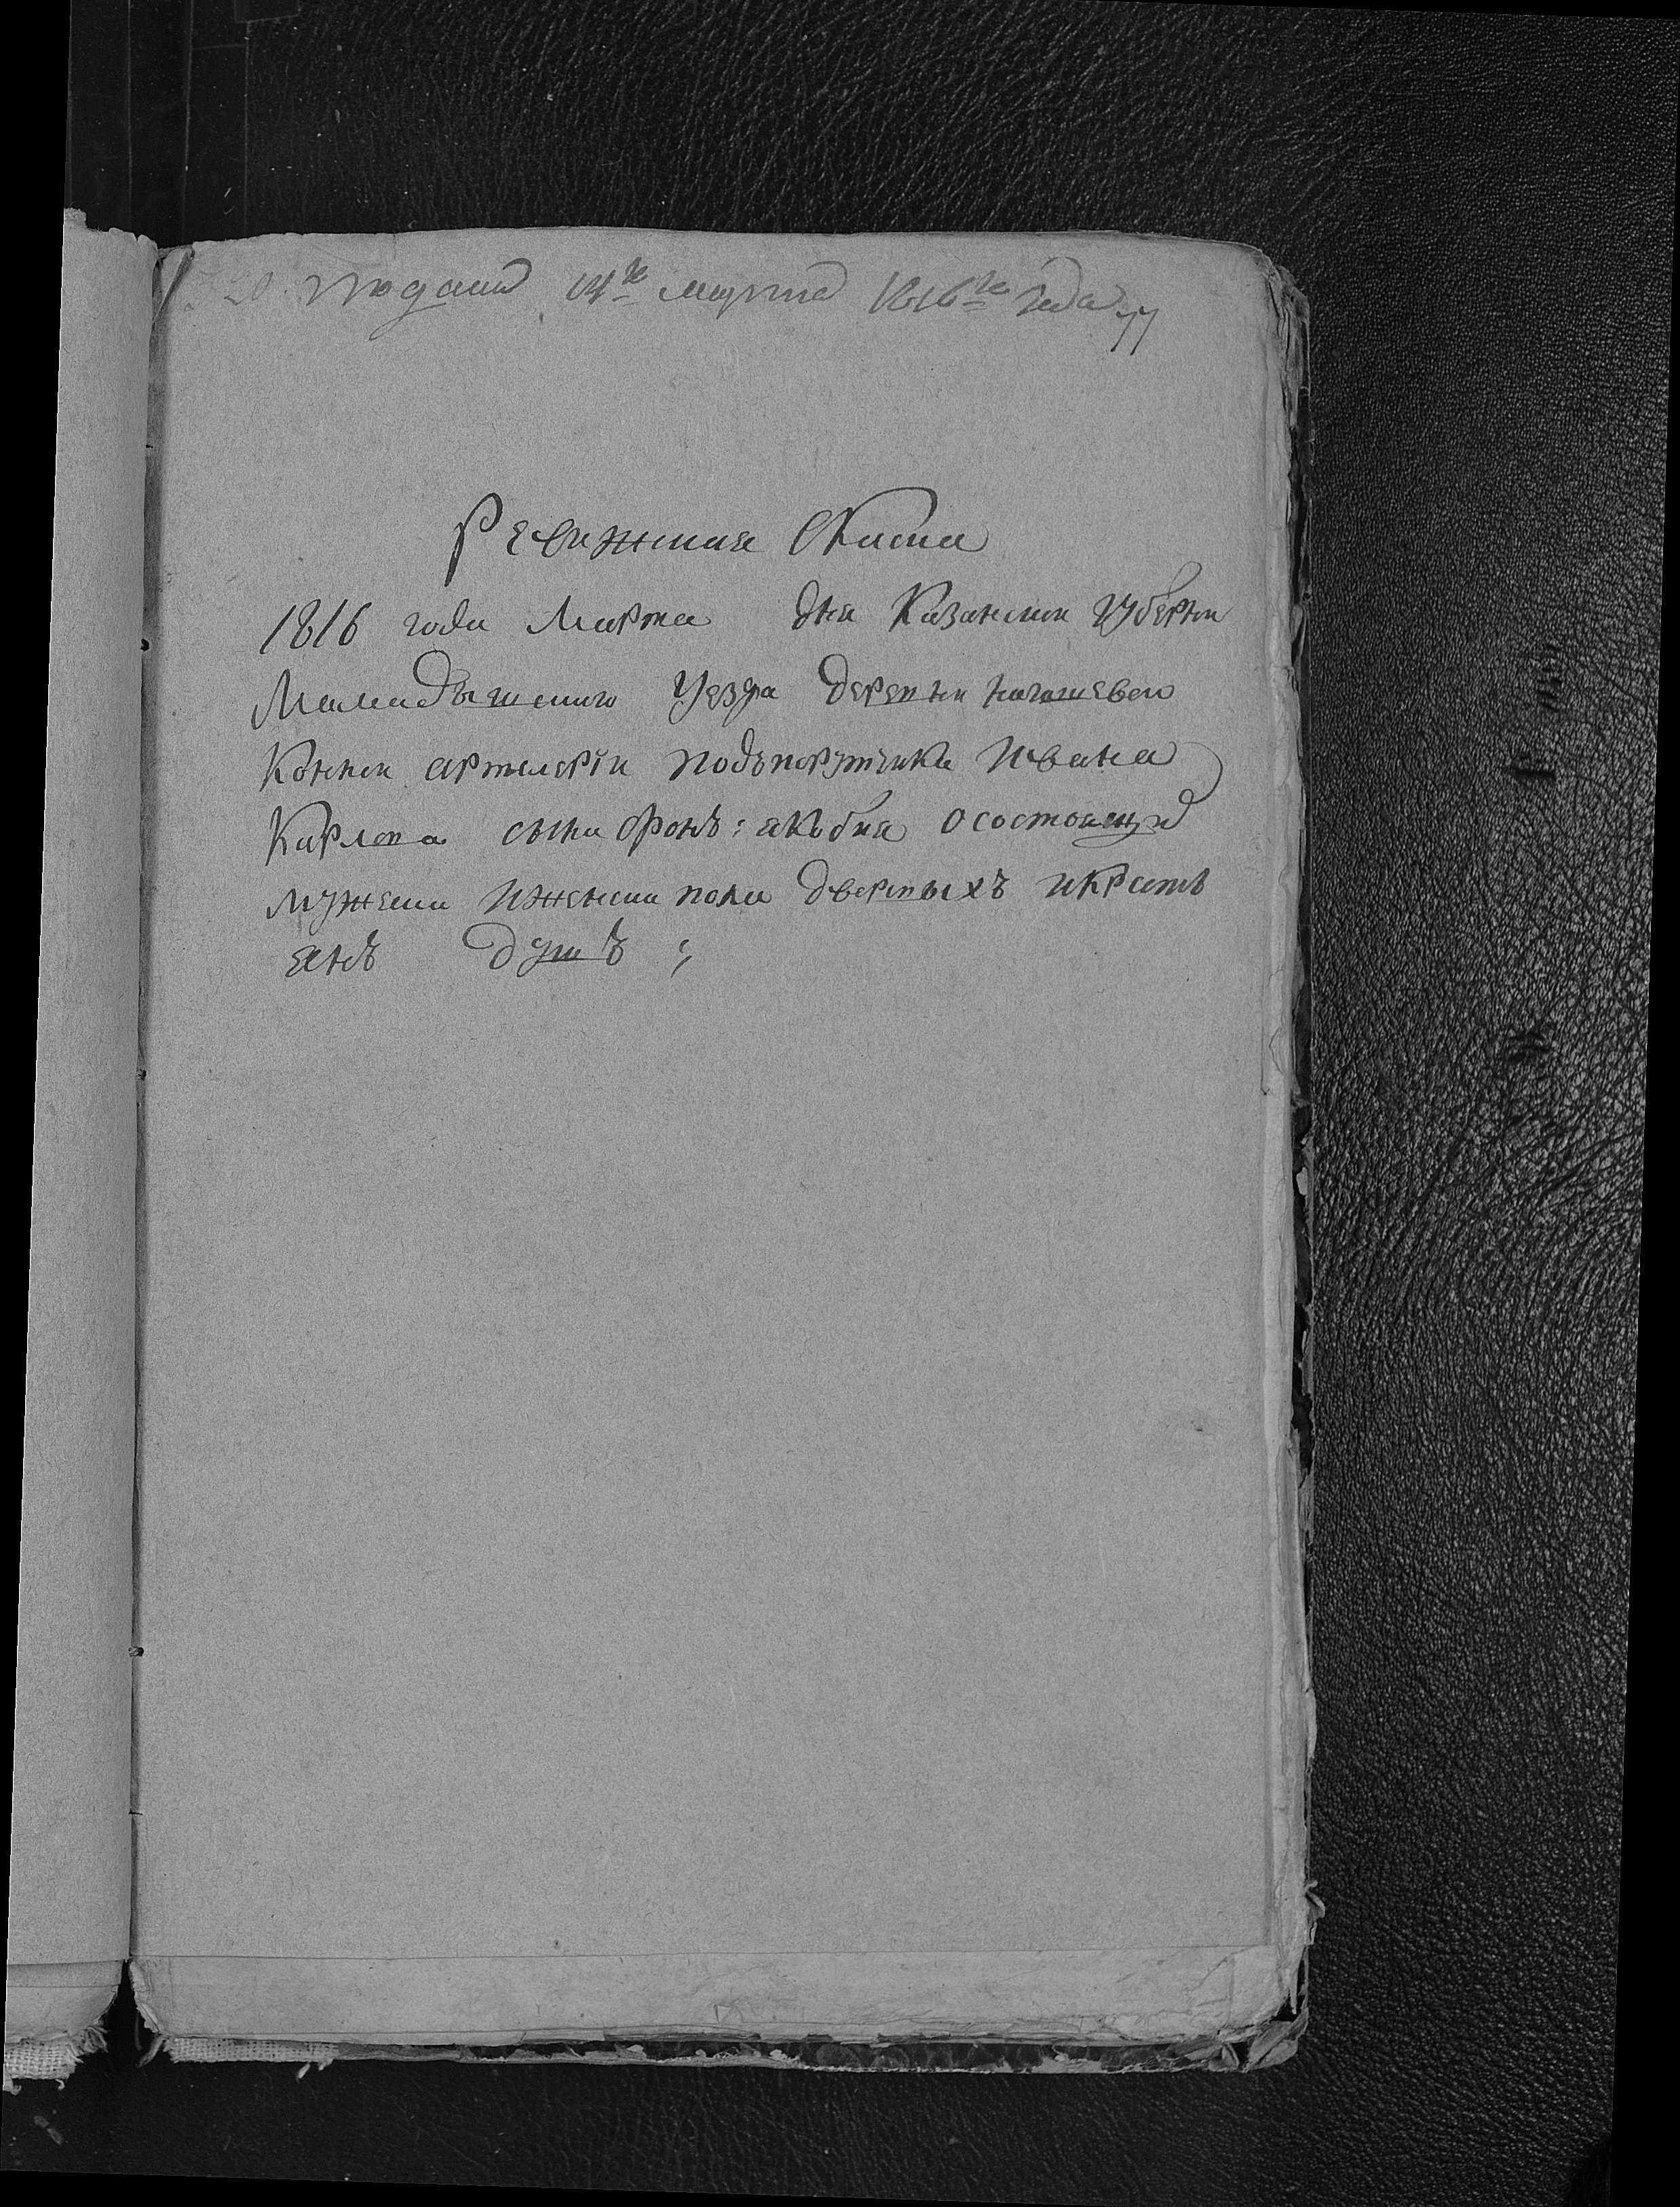 20. подана 14го марта 1816го года 77
Ревижская Скаска
1816 года Марта дня Казанскои губерни
Мамадышского уезда деревни
Коннои артилерїи подъпорутчика Ивана
Карлова сына фонъ: якъбия осостоящих
мужеска иженска пола дверовыхъ икрестъ
янъ душъ ;